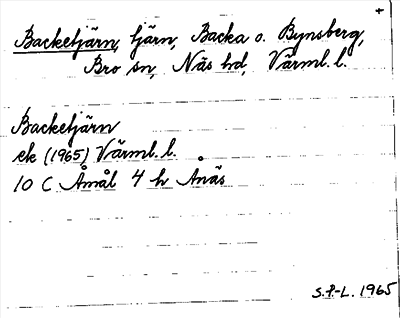 +
Backetjärn, tjärn, Backa o. Bynsberg,
Bro sn, Näs hd, Värml. l.
Backetjärn
ek (1965) Värml. l.
10 C Åmål 4 h Ånäs
S.P-L. 1965